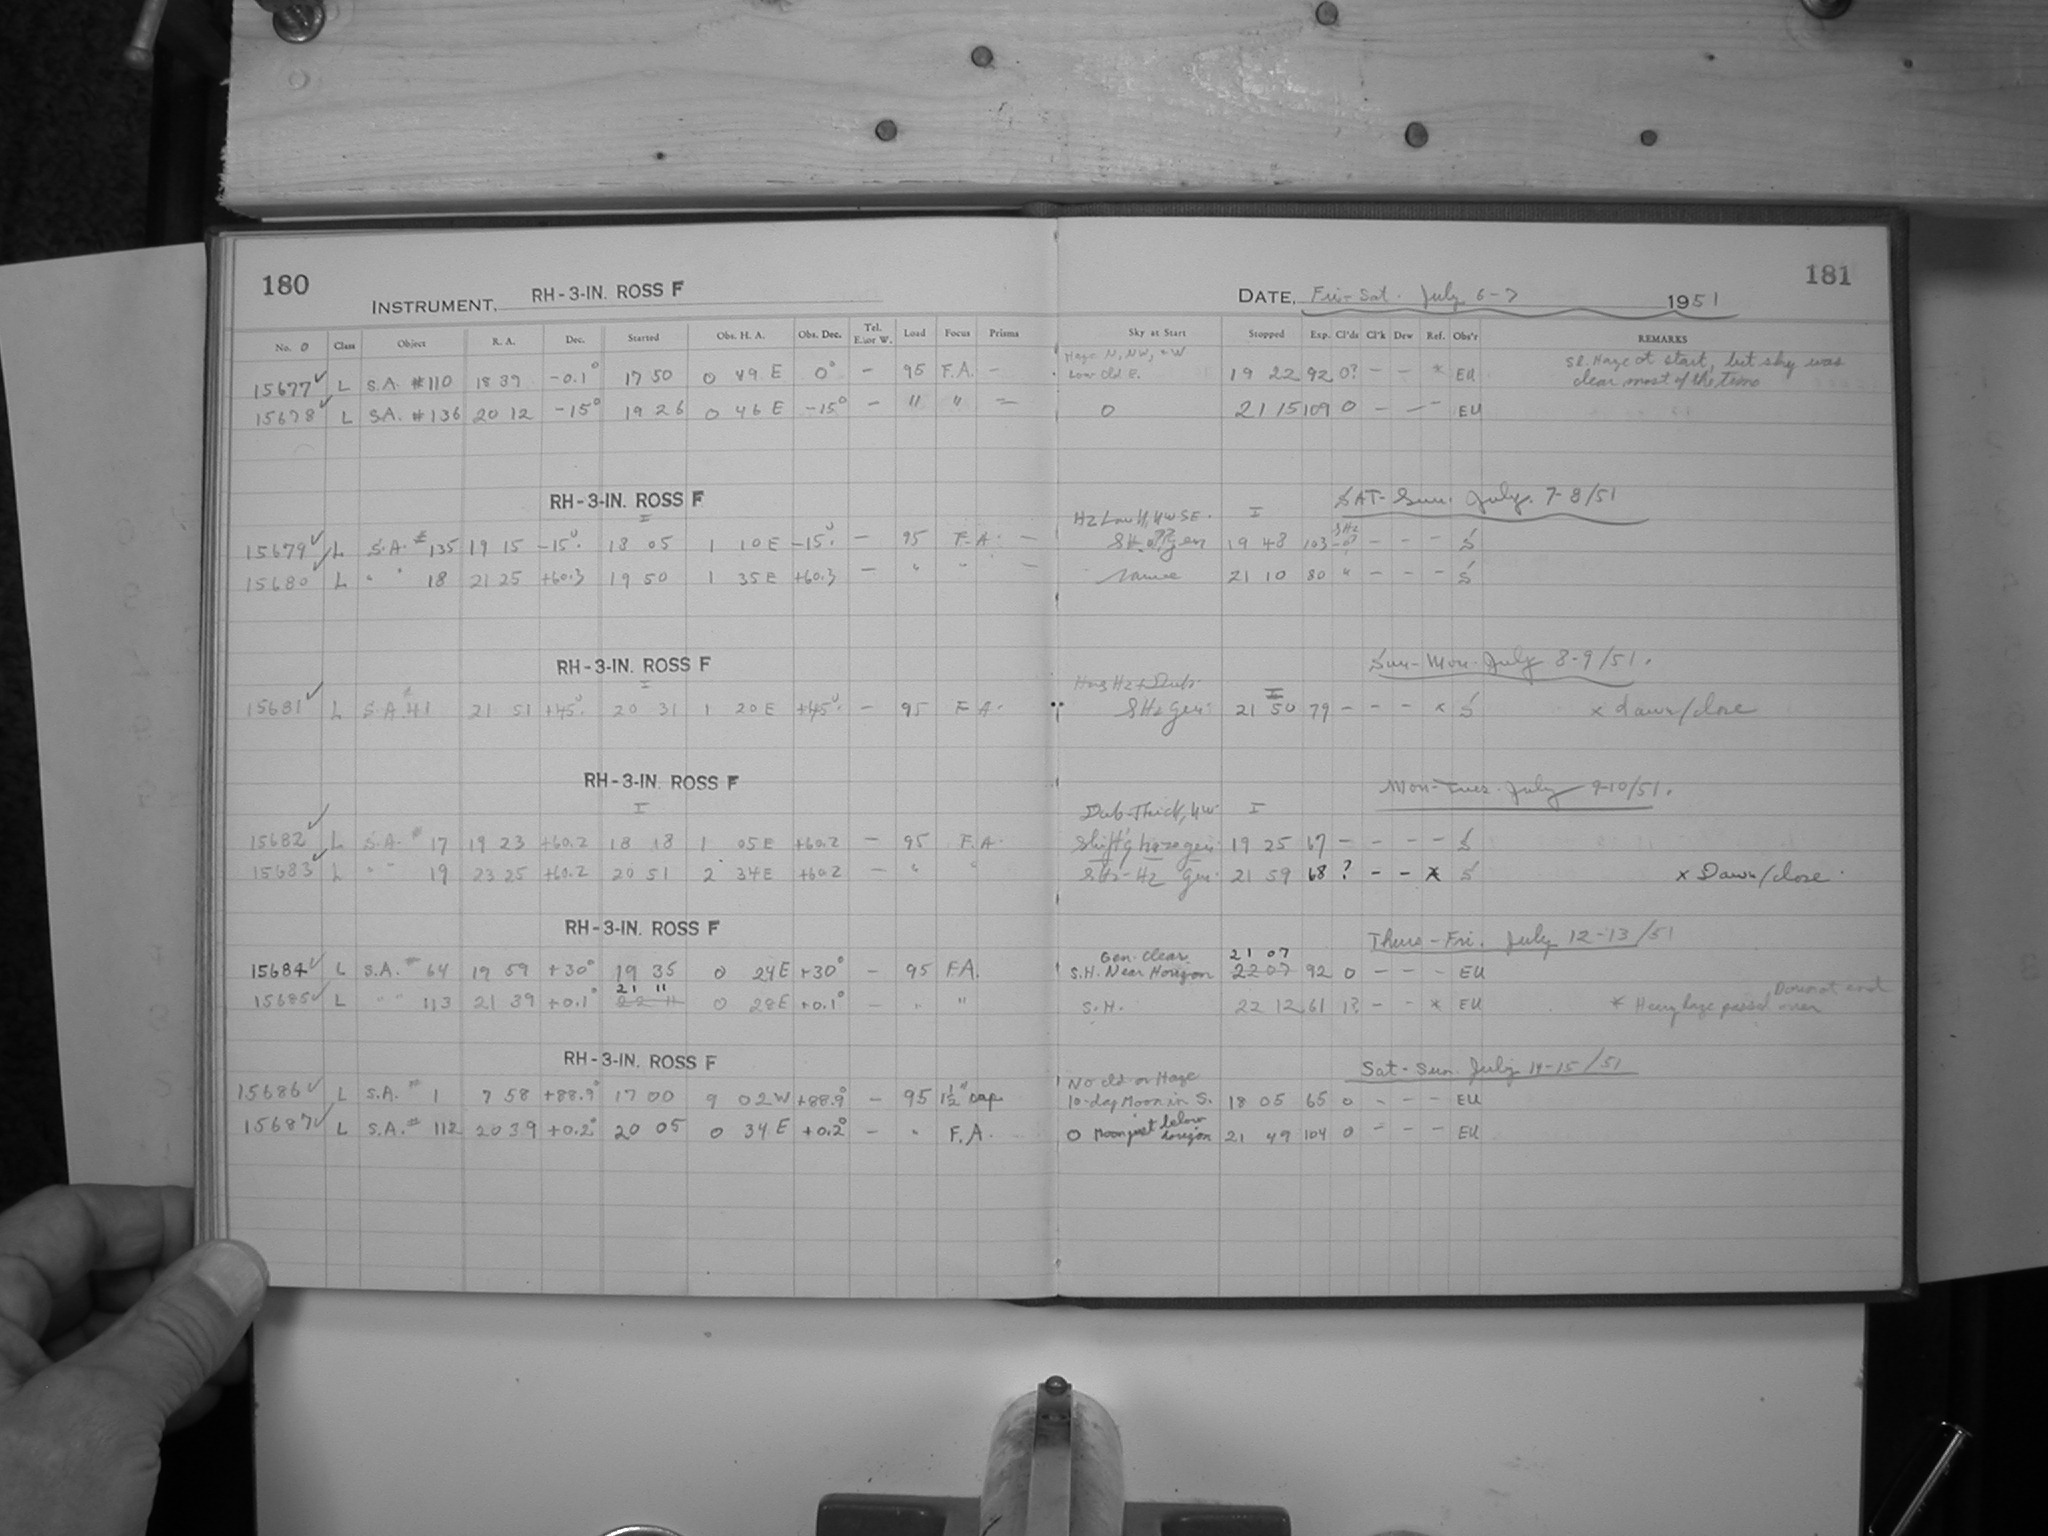 180
INSTRUMENT, RH-3-IN. ROSS F
DATE, Fri-Sat. July 6-7 1951
181
No. Class Object R. A. Dec. Started Obs. H. A. Obs. Dec. Tel. E. or W. Load Focus Prisms Sky at Start Stopped Exp. Cl'ds Cl'k Dew Ref. Obs'r REMARKS
Haze N, NW, + W Sl. Haze at start, but sky was
15677 ✓ L S.A. #110 18 39 -0.1° 17 50 0 49 E 0° - 95 F.A. - Low Cld E. 19 22 92 0? - - * EU clear most of the time
15678 ✓ L S.A. #136 20 12 -15° 19 26 0 46 E -15° - " " - 0 21 15 109 0 - - - EU
RH-3-IN. ROSS F SAT-Sun. July. 7-8/51
15679 ✓ L S.A. # 135 19 15 -15° 18 05 1 10 E -15° - 95 F.A. - 19 48 103 - - - S
15680 ✓ L " " 18 21 25 +60.3 19 50 1 35 E +60.3 - " " - same 21 10 80 " - - - S
RH-3-IN. ROSS F Sun-Mon. July 8-9/51.
15681 ✓ L S.A. # 41 21 51 +45° 20 31 1 20 E +45° - 95 F.A. SHz Gen. 21 50 79 - - - * S x dawn/close
RH-3-IN. ROSS F Mon-Tues. July 9-10/51.
Dub-Thick, NW
15682 ✓ L S.A. # 17 19 23 +60.2 18 18 1 05 E +60.2 - 95 F.A. Shift'g haze gen. 19 25 67 - - - - S
15683 ✓ L " " 19 23 25 +60.2 20 51 2 34 E +60.2 - " " SHz-Hz Gen. 21 59 68 ? - - * S x Dawn/close.
RH-3-IN. ROSS F Thurs-Fri. July 12-13/51
Gen. clear 21 07
15684 ✓ L S.A. # 64 19 59 +30° 19 35 0 24 E +30° - 95 F.A. S.H. Near Horizon 22 07 92 0 - - - EU
21 11 Dawn at end
15685 ✓ L " " 113 21 39 +0.1° 22 11 0 28 E +0.1° - " " S.H. 22 12 61 1? - - * EU * Heavy haze passed over
RH-3-IN. ROSS F Sat-Sun. July 14-15/51
No cld or Haze
15686 ✓ L S.A. # 1 7 58 +88.9° 17 00 9 02 W +88.9° - 95 1½" cap 10-day Moon in S. 18 05 65 0 - - - EU
15687 ✓ L S.A. # 112 20 39 +0.2° 20 05 0 34 E +0.2° - " F.A. 0 Moon just below horizon 21 49 104 0 - - - EU